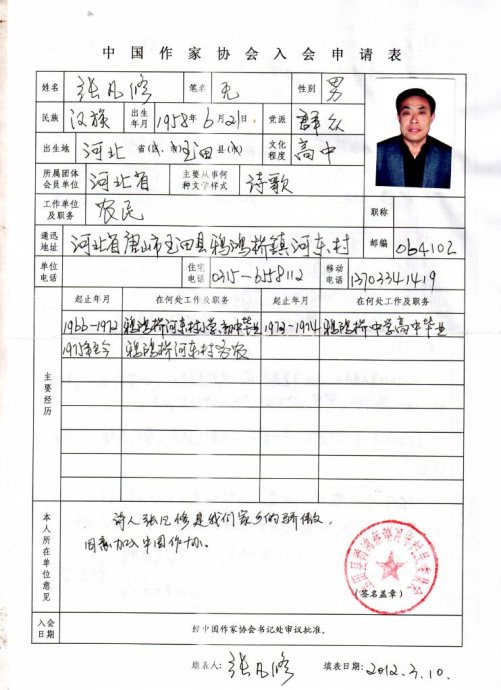 中国作家协会入会申请表
姓名 张凡修 笔名 无 性别 男
民族 汉族 出生年月 1958年6月21日 党派 群众
出生地 河北 省(区、市) 玉田 县(市) 文化程度 高中
所属团体会员单位 河北省 主要从事何种文学样式 诗歌
工作单位及职务 农民 职称
通迅地址 河北省唐山市玉田县鸦鸿桥镇河东村 邮编 064102
单位电话 住宅电话 0315-6558112 移动电话 13703341419
起止年月 在何处工作及职务 起止年月 在何处工作及职务
1966-1972 鸦鸿桥河东村小学、初中毕业 1973-1974 鸦鸿桥中学高中毕业
1975年至今 鸦鸿桥河东村务农
主要经历
诗人张凡修是我们家乡的骄傲,
同意加入中国作协。
本人所在单位意见
(签名盖章)
入会日期 经中国作家协会书记处审议批准。
填表人: 张凡修 填表日期: 2012.3.10.